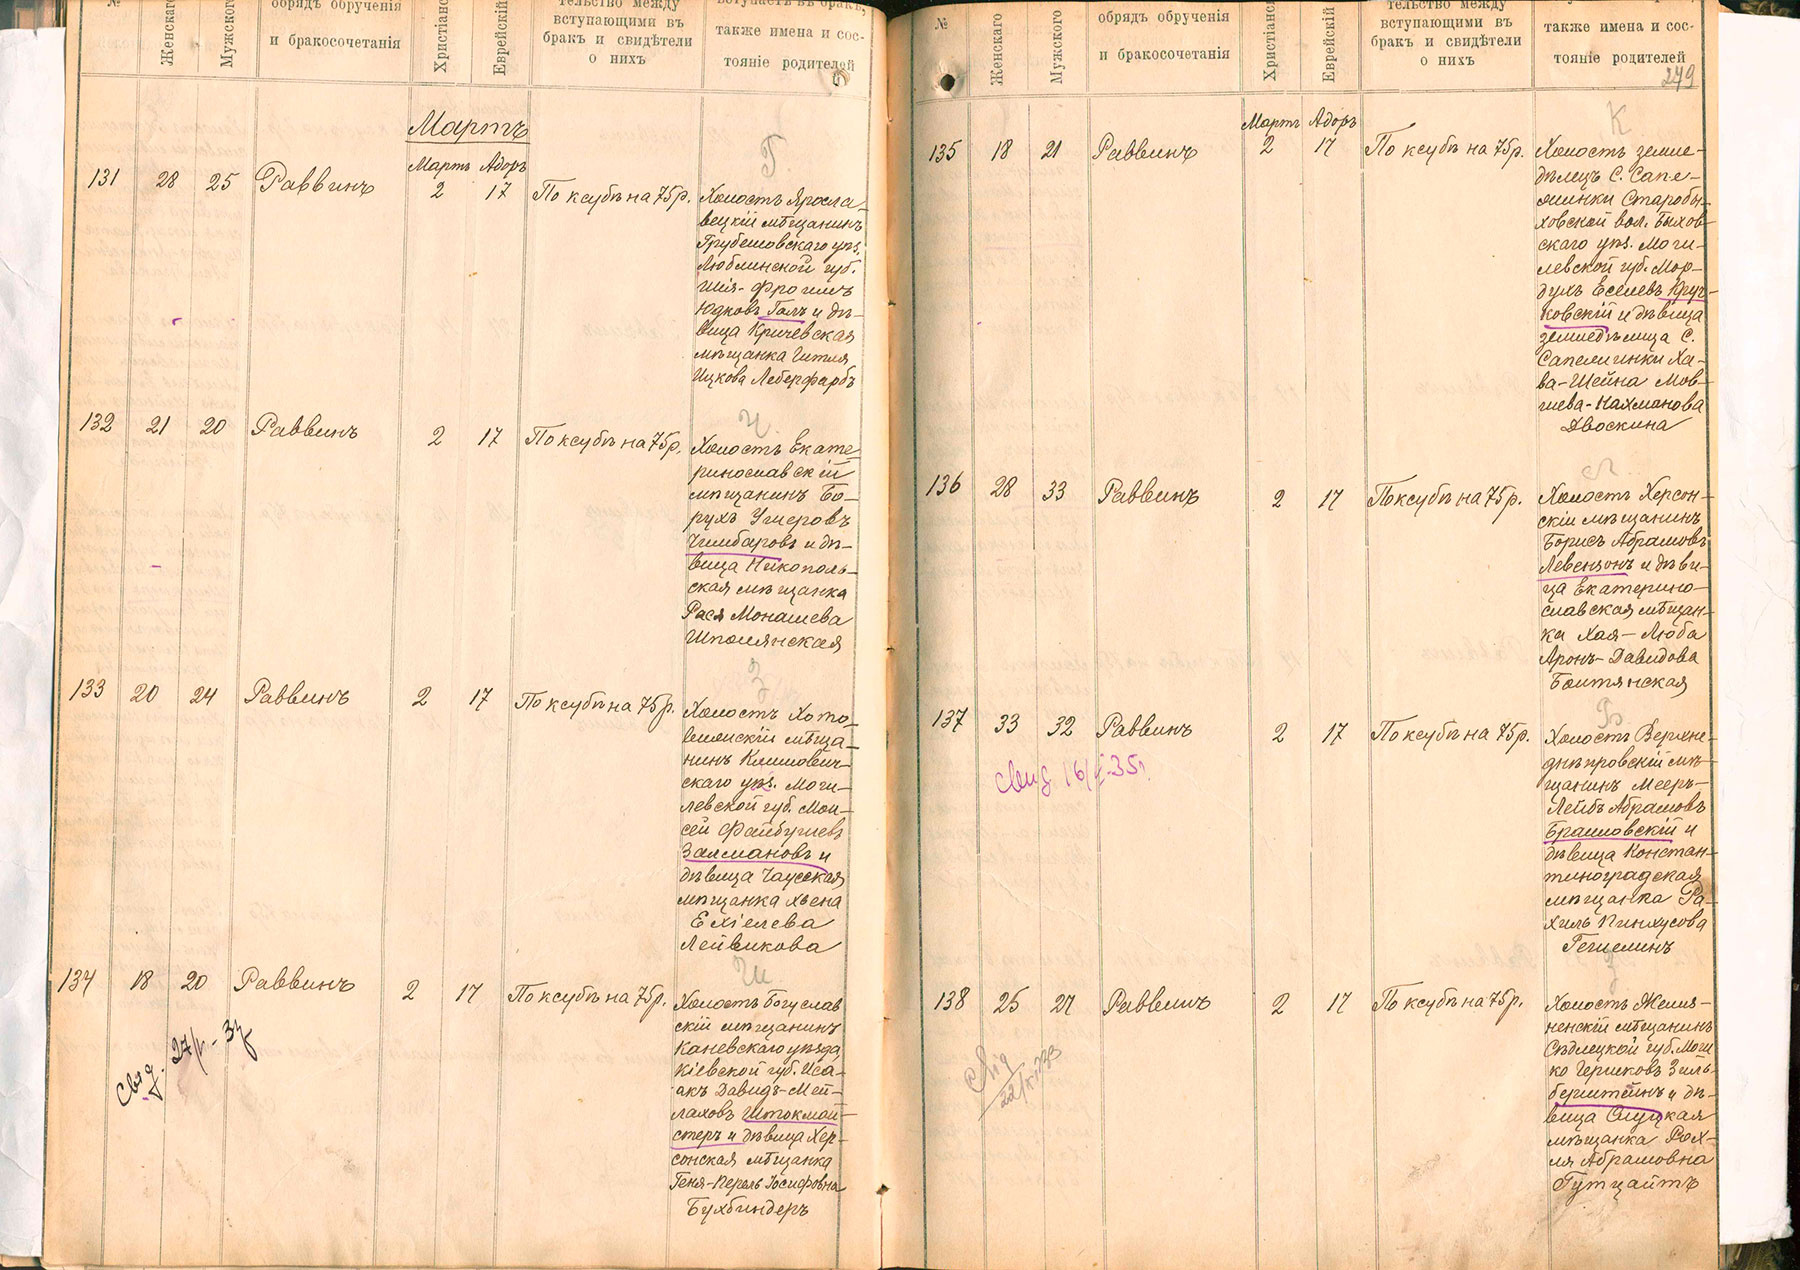 №
Женскаго
Мужского
обрядъ обрученія
и бракосочетанія
Христіанс
Еврейскій
тельство между
вступающими въ
бракъ и свидѣтели
о нихъ
вступаетъ въ бракъ,
также имена и сос-
тояніе родителей
Мартъ
Мартъ Адоръ
131 28 25 Раввинъ 2 17 По ксубѣ на 75р.
Г.
Холостъ Яросла-
вецкій мѣщанинъ
Грубешовскаго уѣз.
Люблинской губ.
Шія-Фроимъ
Юдковъ Галъ и дѣ-
вица Кричевская
мѣщанка Гитля
Ицкова Леберфарбъ
132 21 20 Раввинъ 2 17 По ксубѣ на 75р.
Ч.
Холостъ Екате-
ринославскій
мѣщанинъ Бо-
рухъ Ушеровъ
Чимбаровъ и дѣ-
вица Никополь-
ская мѣщанка
Рася Монашева
Шполянская
133 20 24 Раввинъ 2 17 По ксубѣ на 75р.
З
Холостъ Хото-
вимскій мѣща-
нинъ Климович-
скаго уѣз. Моги-
левской губ. Мои-
сей Файбушевъ
Залмановъ и
дѣвица Чаусская
мѣщанка Хьена
Ехіелева
Лейвикова
134 18 20 Раввинъ 2 17 По ксубѣ на 75р.
Ш
Холостъ Богуслав
скій мѣщанинъ
Каневскаго уѣзда,
Кіевской губ. Иса-
акъ Давидъ-Мей-
лаховъ Штокмай-
стеръ и дѣвица Хер-
сонская мѣщанка
Геня-Перель Іосифовна
Бухбиндеръ
Свид.
№
Женскаго
Мужского
обрядъ обрученія
и бракосочетанія
Христіанс
Еврейскій
тельство между
вступающими въ
бракъ и свидѣтели
о нихъ
также имена и сос-
тояніе родителей
279
Мартъ Адоръ
135 18 21 Раввинъ 2 17 По ксубѣ на 75р.
К
Холостъ земле-
дѣлецъ С. Сапе-
жинки Старобы-
ховской вол. Быхов-
скаго уѣз. Моги-
левской губ. Мор-
духъ Еселевъ Круч-
ковскій и дѣвица
земледѣлица С.
Сапежинки Ха-
ва-Шейна Мов-
шева-Нахманова
Двоскина
136 28 33 Раввинъ 2 17 По ксубѣ на 75р.
Л.
Холостъ Херсон-
скій мѣщанинъ
Борисъ Абрамовъ
Левензонъ и дѣви-
ца Екатерино-
славская мѣщан-
ка Хая-Люба
Аронъ-Давидова
Болтянская
137 33 32 Раввинъ 2 17 По ксубѣ на 75р.
Б
Холостъ Верхне-
днѣпровскій мѣ-
щанинъ Мееръ-
Лейбъ Абрамовъ
Браиловскій и
дѣвица Констан-
тиноградская
мѣщанка Ра-
хиль Пинхусова
Гешелинъ
свид
138 25 27 Раввинъ 2 17 По ксубѣ на 75р.
З
Холостъ
мѣщанинъ
Сѣдлецкой губ.
ко Гершковъ Зиль-
берштейнъ и дѣ-
вица Слуцкая
мѣщанка Рох-
ля Абрамовна
Гутцайтъ